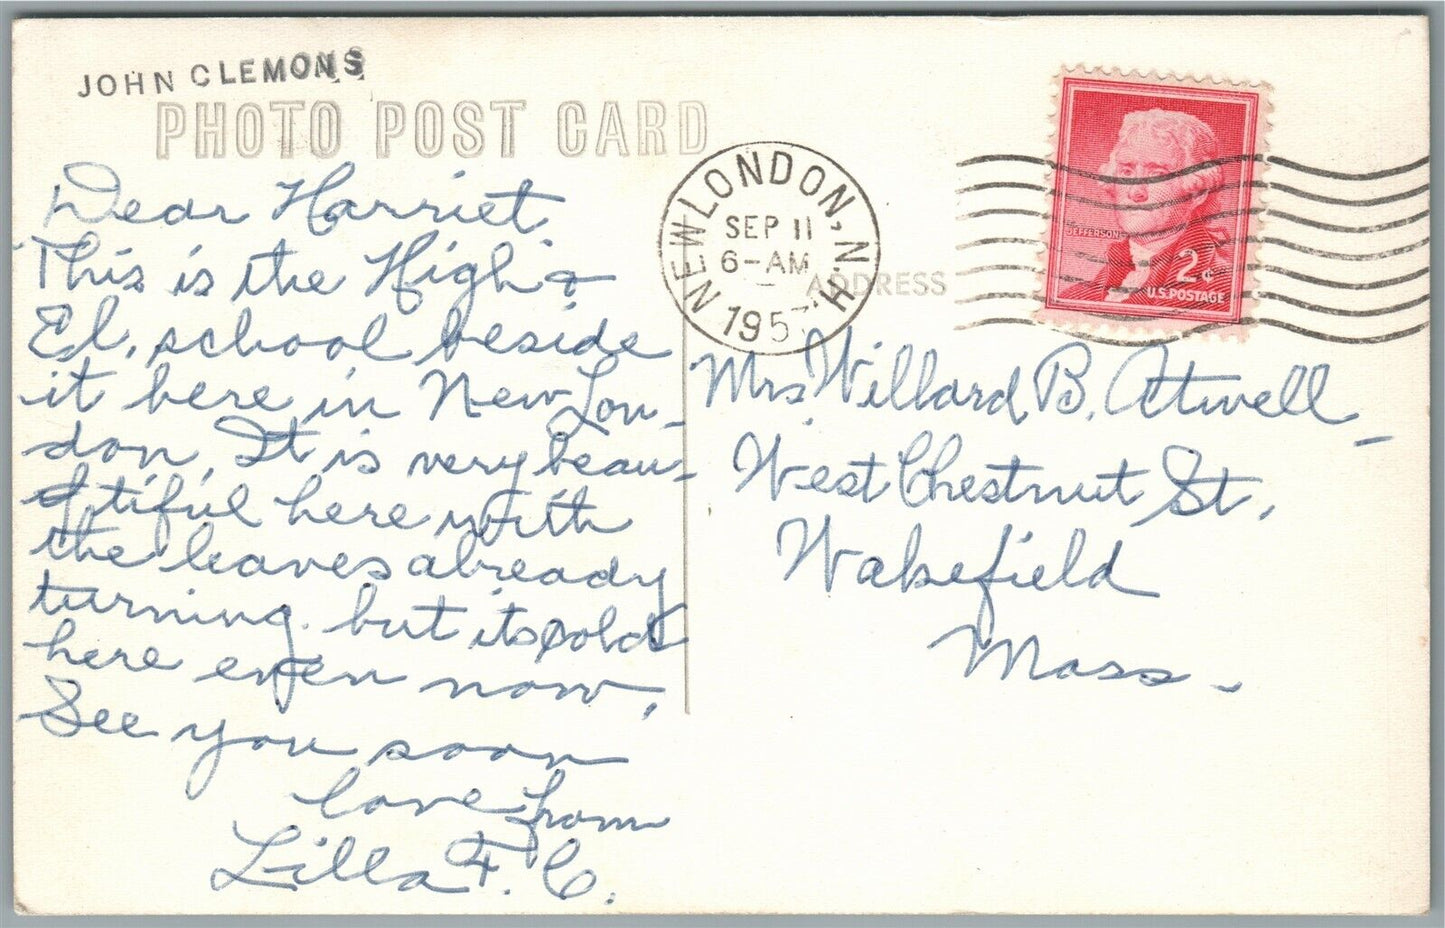 JOHN CLEMONS
PHOTO POST CARD
Dear Harriet
This is the High &
El. school beside
it here in New Lon-
don. It is very beau-
tiful here with
the leaves already
turning. but its cold
here even now.
See you soon
love from
Lilla F. C.
NEW LONDON, N.H.
SEP 11
6-AM
195
ADDRESS
JEFFERSON
2¢
U.S. POSTAGE
Mrs Willard B. Atwell
West Chestnut St.
Wakefield
Mass.